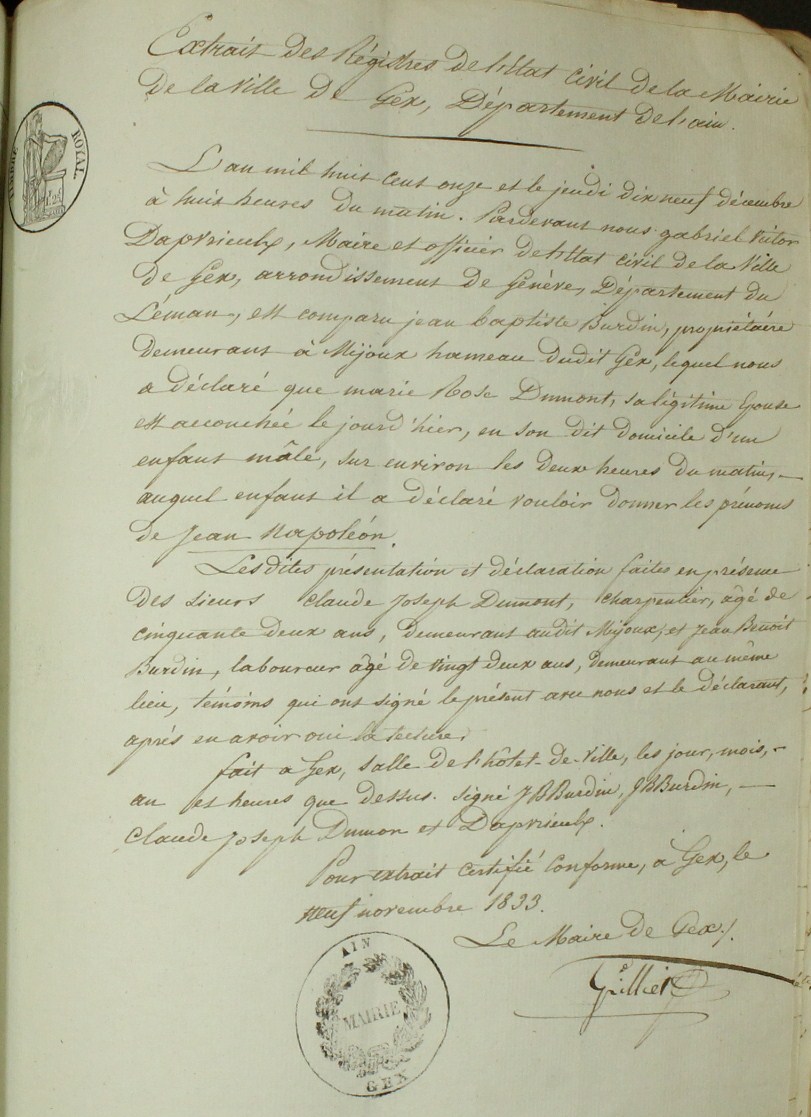 Extrait des Régistres de l'Etat civil de la Mairie
de la ville de Gex, Département de l'ain.
TIMBRE ROYAL.
L'an mil huit cent onze et le jeudi dix neuf décembre
à huit heures du matin. Pardevant nous gabriel victor
Daprvieulx, Maire et officier de l'Etat civil de la Ville
de Gex, arrondissement de Genève, Département du
Léman, est comparu jean baptiste Burdin, propriétaire
demeurant à Mijoux hameau dudit Gex, lequel nous
a déclaré que marie Rose Dumont, sa légitime épouse
est accouchée le jourd'hier, en son dit domicile d'un
enfant mâle, sur environ les deux heures du matin, —
auquel enfant il a déclaré vouloir donner les prénoms
de Jean Napoléon.
Lesdites présentation et déclaration faites en présence
des sieurs Claude Joseph Dumont, charpentier, âgé de
cinquante deux ans, demeurant audit Mijoux, et Jean Benoit
Burdin, laboureur âgé de vingt deux ans, demeurant au même
lieu, témoins qui ont signé le présent avec nous et le déclarant,
aprés en avoir oui la lecture.
fait a Gex, salle de l'hôtel-de-ville, les jour, mois, -
an et heures que dessus. signé J B Burdin, J B Burdin, —
Claude Joseph Dumon et Daprvieulx.
Pour extrait certifié conforme, à Gex, le
neuf novembre 1833.
Le Maire de Gex,
AIN
MAIRIE
GEX